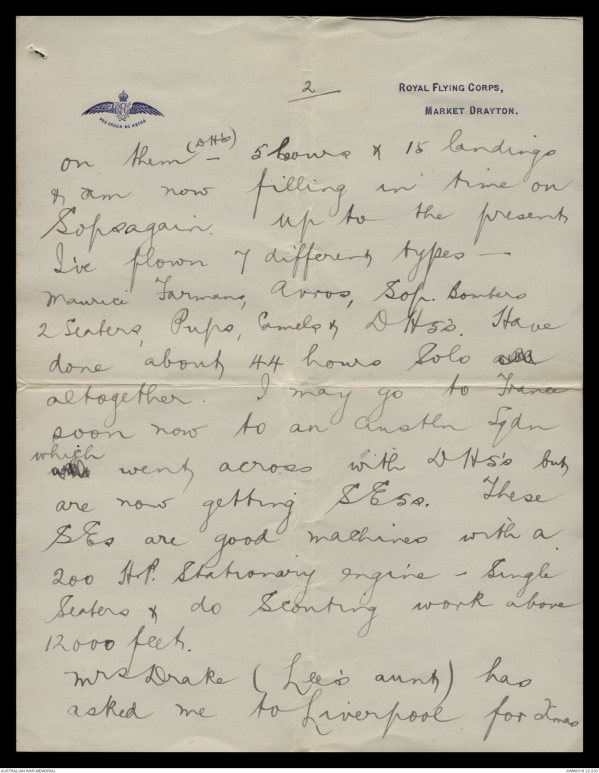 2
ROYAL FLYING CORPS,
MARKET DRAYTON.
PER ARDUA AD ASTRA
on them (DH's) – 5 hours & 15 landings
& am now filling in time on
Sops again. Up to the present
I've flown 7 different types –
Maurice Farmans, Avros, Sop. Bombers
2 Seaters, Pups, Camels & DH5s. Have
done about 44 hours Solo
altogether. I may go to France
soon now to an Austln Sqdn
which went across with DH5's but
are now getting SE5s. These
SEs are good machines with a
200 H.P. Stationary engine – Single
Seaters & do Scouting work above
12000 feet.
Mrs Drake (Lee's aunt) has
asked me to Liverpool for Xmas
AUSTRALIAN WAR MEMORIAL